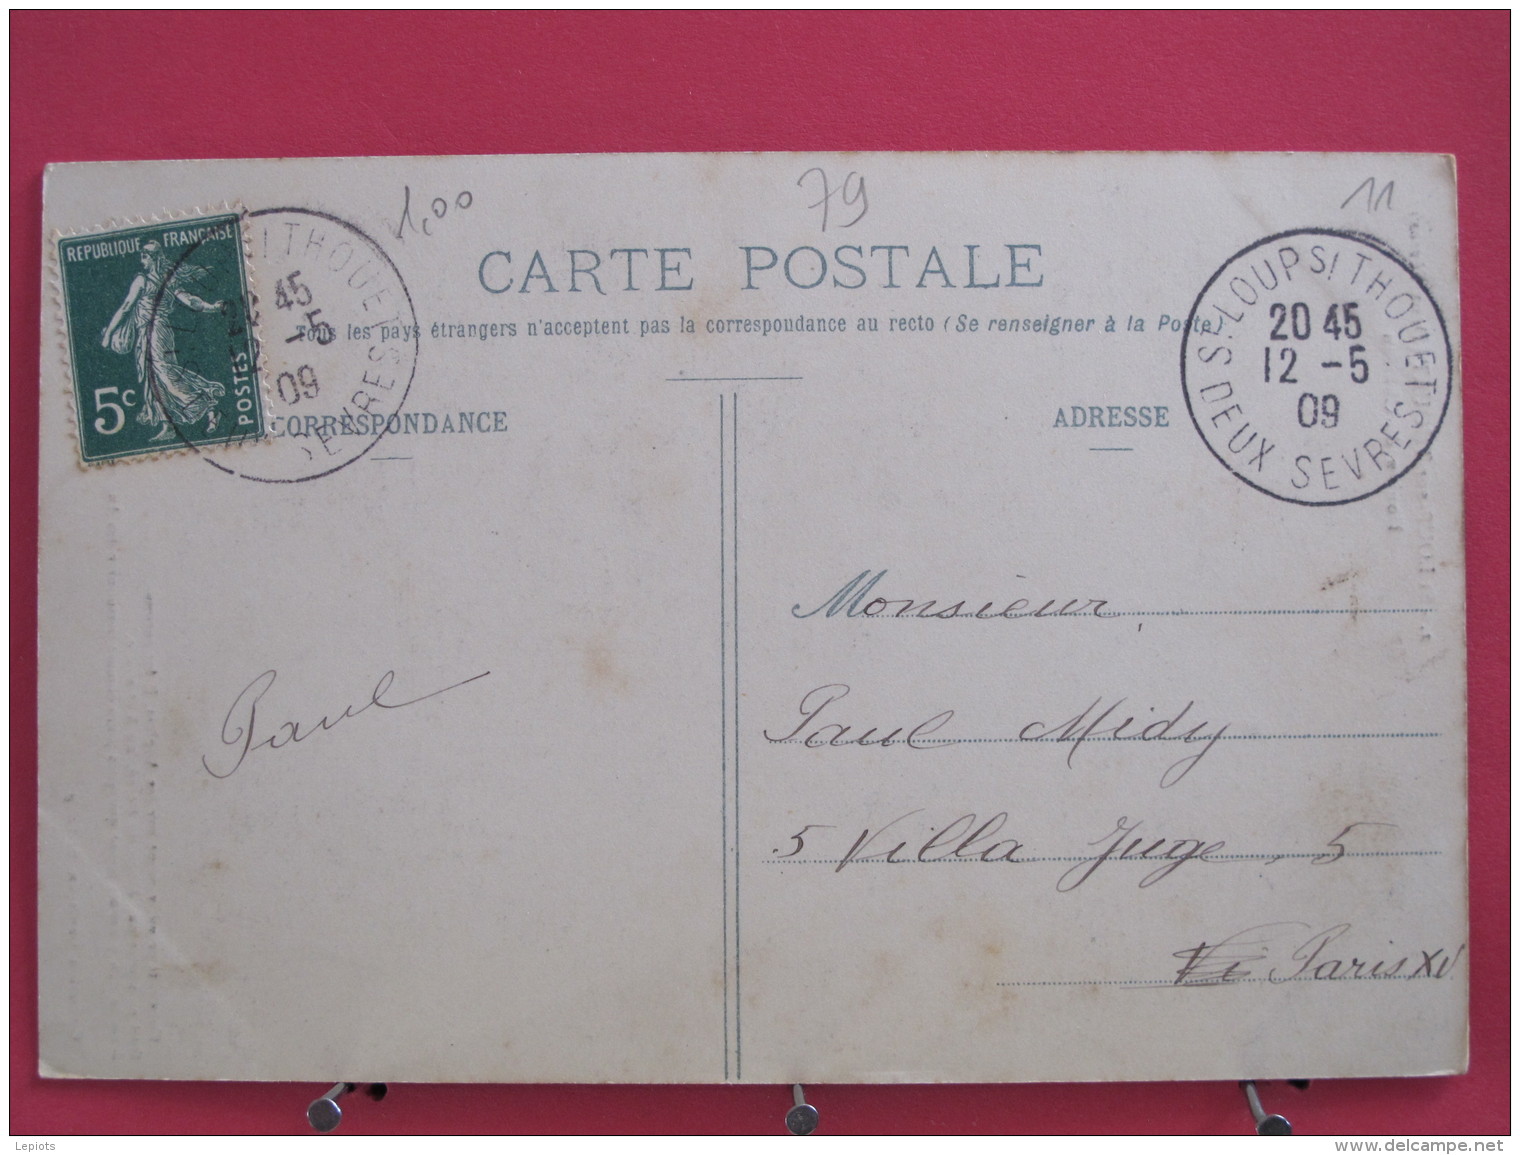 1,00
79
11
REPUBLIQUE FRANÇAISE
5c
POSTES
ST LOUP S/ THOUET
20 45
12 -5
09
DEUX SEVRES
CARTE POSTALE
ST LOUP S/ THOUET
20 45
12 -5
09
DEUX SEVRES
Tous les pays étrangers n'acceptent pas la correspondance au recto (Se renseigner à la Poste)
CORRESPONDANCE
ADRESSE
Monsieur
Paul
Paul Midy
5 Villa Juge, 5
Vi Paris XV
Lepiots
delcampe.net